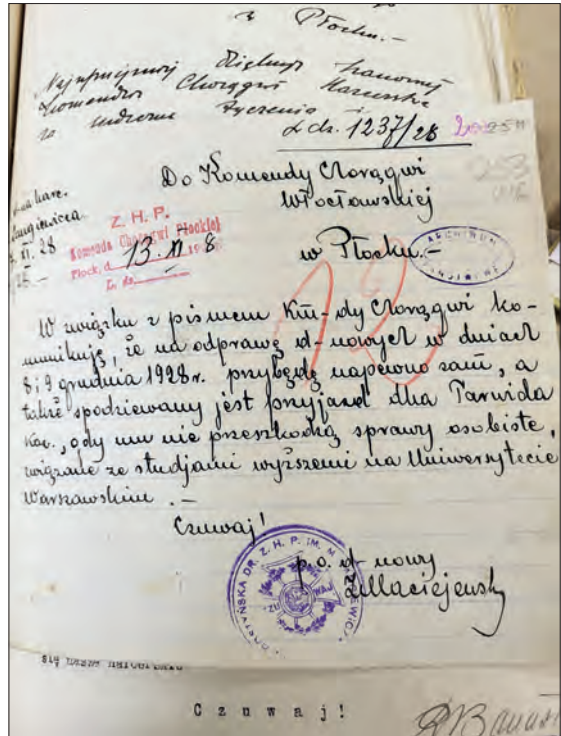 w Płocku.-
Najuprzejmiej dziękuję
Komendzie Chorągwi
za życzenia i
L. dz. 1237/28
253
Do Komendy Chorągwi
Włocławskiej
w Płocku.-
XI. 28
Z. H. P.
Komenda Chorągwi Płockiej
Płock, d. 13. XI 8
L. dz.
ARCHIWUM
W związku z pismem Km-dy Chorągwi ko-
munikuję, że na odprawę d-nowych w dniach
8 i 9 grudnia 1928 r. przybędę napewno sam, a
także spodziewany jest przyjazd dha Tarwida
Kaz., gdy mu nie przeszkodzą sprawy osobiste,
związane ze studjami wyższemi na Uniwersytecie
Warszawskim.-
Czuwaj!
DR. Z. H. P. IM. M.
p. o. d-nowy
Maciejewski
Czuwaj!